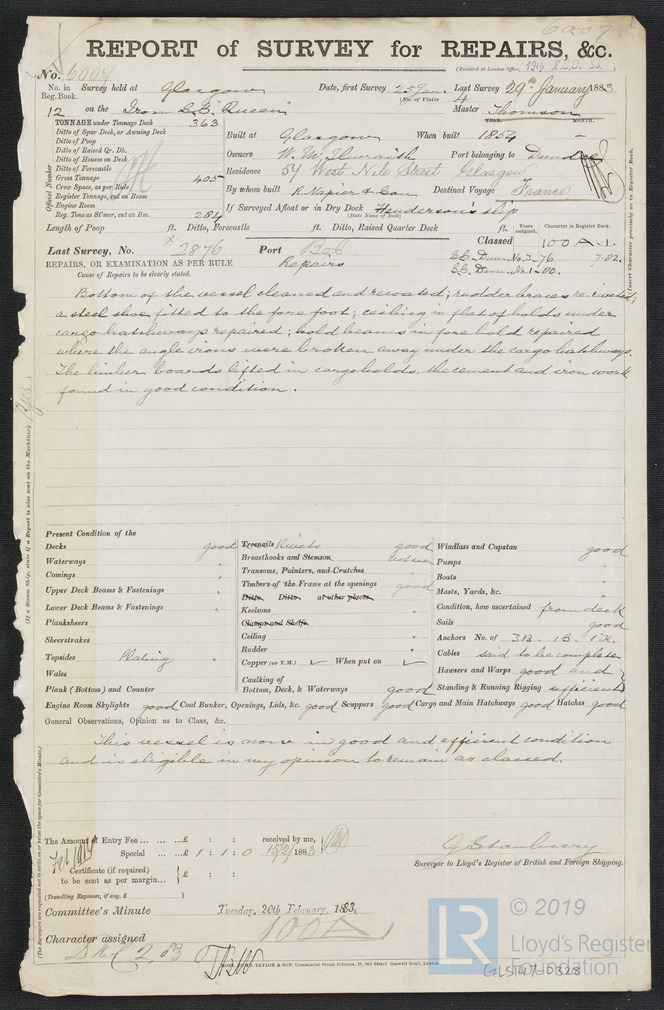 6007
REPORT of SURVEY for REPAIRS, &c.
No. 6007 (Received at London Office, 19th FEB. 83.)
No. in Survey held at Glasgow Date, first Survey 25 Jan. Last Survey 29th January 1883
Reg. Book. (No. of Visits 4
12 on the Iron S.S. "Queen" Master Thomson
YEAR. MONTH.
TONNAGE under Tonnage Deck 363
Ditto of Spar Deck, or Awning Deck
Ditto of Poop
Built at Glasgow When built 1854
Ditto of Raised Qr. Dk.
Ditto of Houses on Deck
Owners W. McIlwraith Port belonging to Dundee
Ditto of Forecastle
Gross Tonnage 405
Residence 54 West Nile Street Glasgow
Crew Space, as per Rule
Register Tonnage, cut on Beam
By whom built R. Napier & Son Destined Voyage France
Engine Room
Reg. Tons as St'mer, cut on Bm. 284
Official Number
If Surveyed Afloat or in Dry Dock Henderson's slip
(State Name of Dock)
Length of Poop ft. Ditto, Forecastle ft. Ditto, Raised Quarter Deck ft. Years assigned. Character in Register Book.
Last Survey, No. 2876 Port Classed 100 A. 1.
S.S. Dun. No. 3-76 7-82.
REPAIRS, OR EXAMINATION AS PER RULE Repairs S.S. Dun. No. 1-80.
Cause of Repairs to be clearly stated.
(Insert Character precisely as in Register Book.
Bottom of the vessel cleaned and recoated; rudder braces re-riveted;
a steel shoe fitted to the fore foot; ceiling in flat of holds under
cargo hatchways repaired; hold beams in fore hold repaired
where the angle irons were broken away under the cargo hatchways.
The limber boards lifted in cargo holds, the cement and iron work
found in good condition.
(If a Steam Ship, state if a Report is also sent on the Machinery Yes.
Present Condition of the
Decks good
Waterways "
Comings "
Upper Deck Beams & Fastenings "
Lower Deck Beams & Fastenings "
Planksheers
Sheerstrakes
Topsides Plating "
Wales
Plank (Bottom) and Counter
Treenails Rivets good
Breasthooks and Stemson
Transoms, Pointers, and Crutches
Timbers of the Frame at the openings good
Ditto Ditto at other places
Keelsons "
Clamps and Shelfs
Ceiling "
Rudder "
Copper (or Y.M.) When put on
Caulking of
Bottom, Deck, & Waterways good
Windlass and Capstan good
Pumps "
Boats "
Masts, Yards, &c. "
Condition, how ascertained from deck
Sails good
Anchors No. of 3B. 1S. 1K.
Cables said to be complete
Hawsers and Warps good and
Standing & Running Rigging sufficient
Engine Room Skylights good Coal Bunker, Openings, Lids, &c. good Scuppers good Cargo and Main Hatchways good Hatches good
General Observations, Opinion as to Class, &c.
This vessel is now in good and efficient condition
and is eligible in my opinion to remain as classed.
(The Surveyors are requested not to write on or below the space for Committee's Minute.)
The Amount of Entry Fee ... ... ...£ : : received by me,
Special ... ...£ 1 : 1 : 0 15/2/1883
Certificate (if required)
to be sent as per margin... } £ : :
(Travelling Expenses, if any, £ )
G Stanbury
Surveyor to Lloyd's Register of British and Foreign Shipping.
Committee's Minute Tuesday, 20th February, 1883.
Character assigned 100A
© 2019
LR
Lloyd's Register
Foundation
GLSTWI-0328